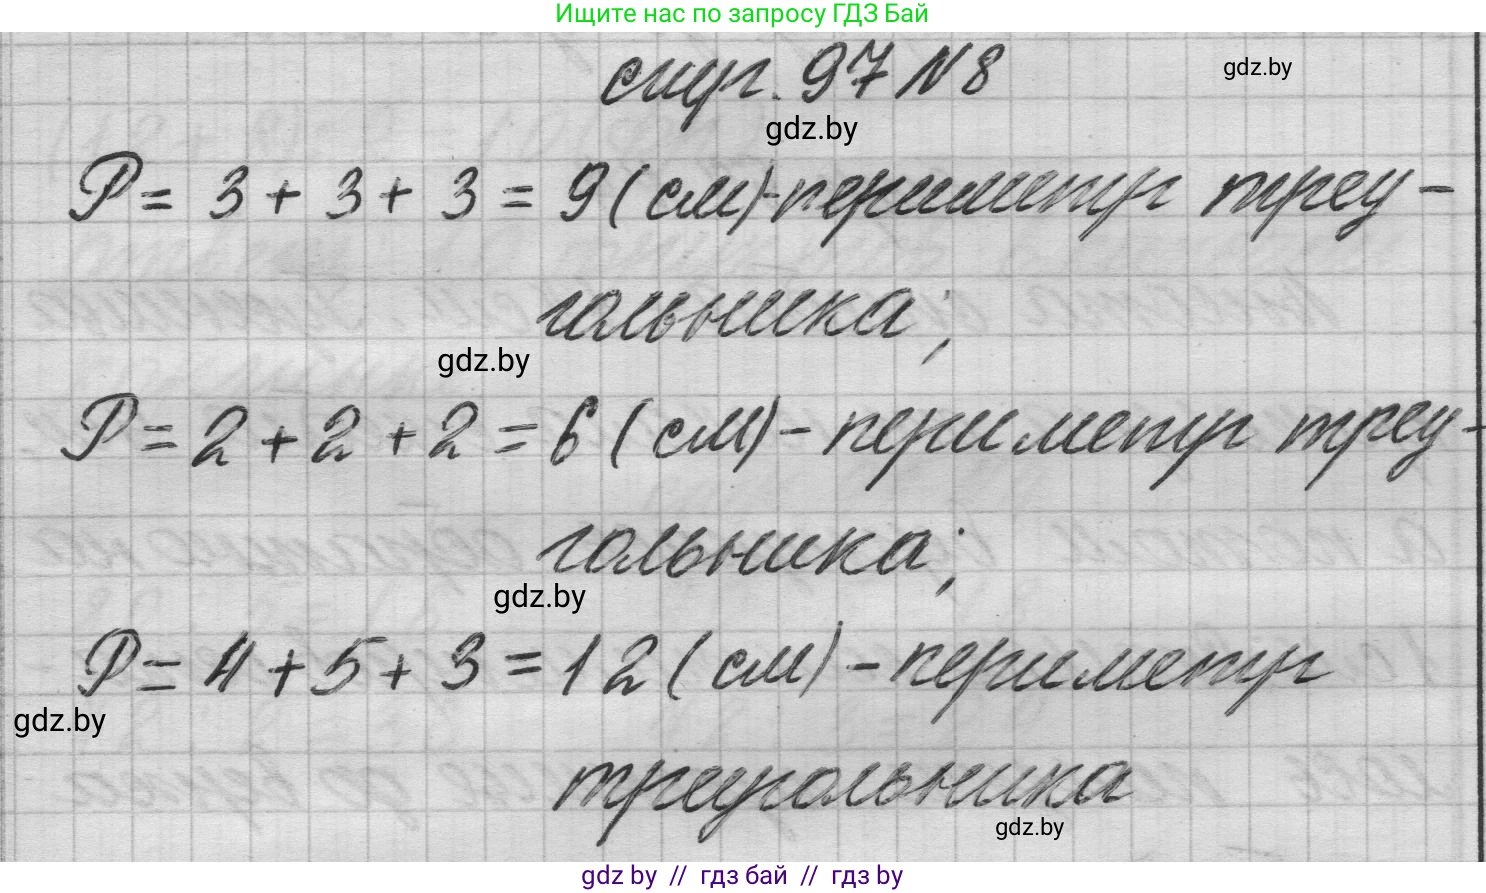 Ищите нас по запросу ГДЗ Бай
стр. 97 N 8
gdz.by
gdz.by
P = 3 + 3 + 3 = 9 (см)-периметр треу-
гольника;
gdz.by
P = 2 + 2 + 2 = 6 (см) - периметр треу-
гольника;
gdz.by
P = 4 + 5 + 3 = 12 (см) - периметр
gdz.by
треугольника
gdz.by
gdz by // гдз бай // гдз by